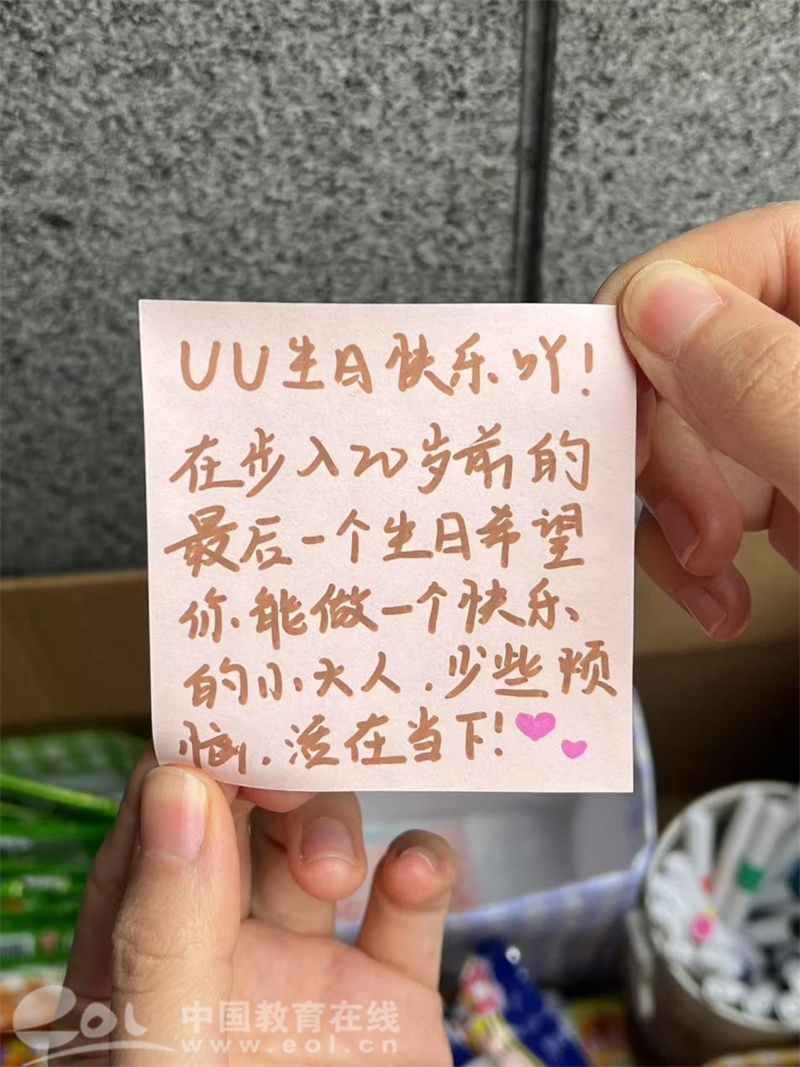 UU生日快乐吖!
在步入20岁前的
最后一个生日希望
你能做一个快乐
的小大人,少些烦
恼,活在当下!
eol 中国教育在线
www.eol.cn